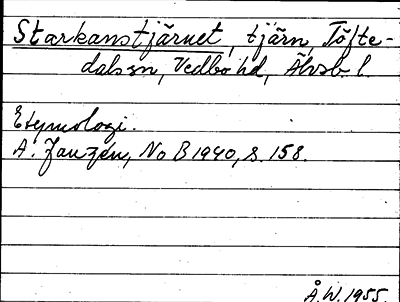 Starkanstjärnet, tjärn, Töfte-
dals sn, Vedbo hd, Älvsb. l.
Etymologi.
A. Janzén, No B 1940, s. 158.
Å.W. 1955.